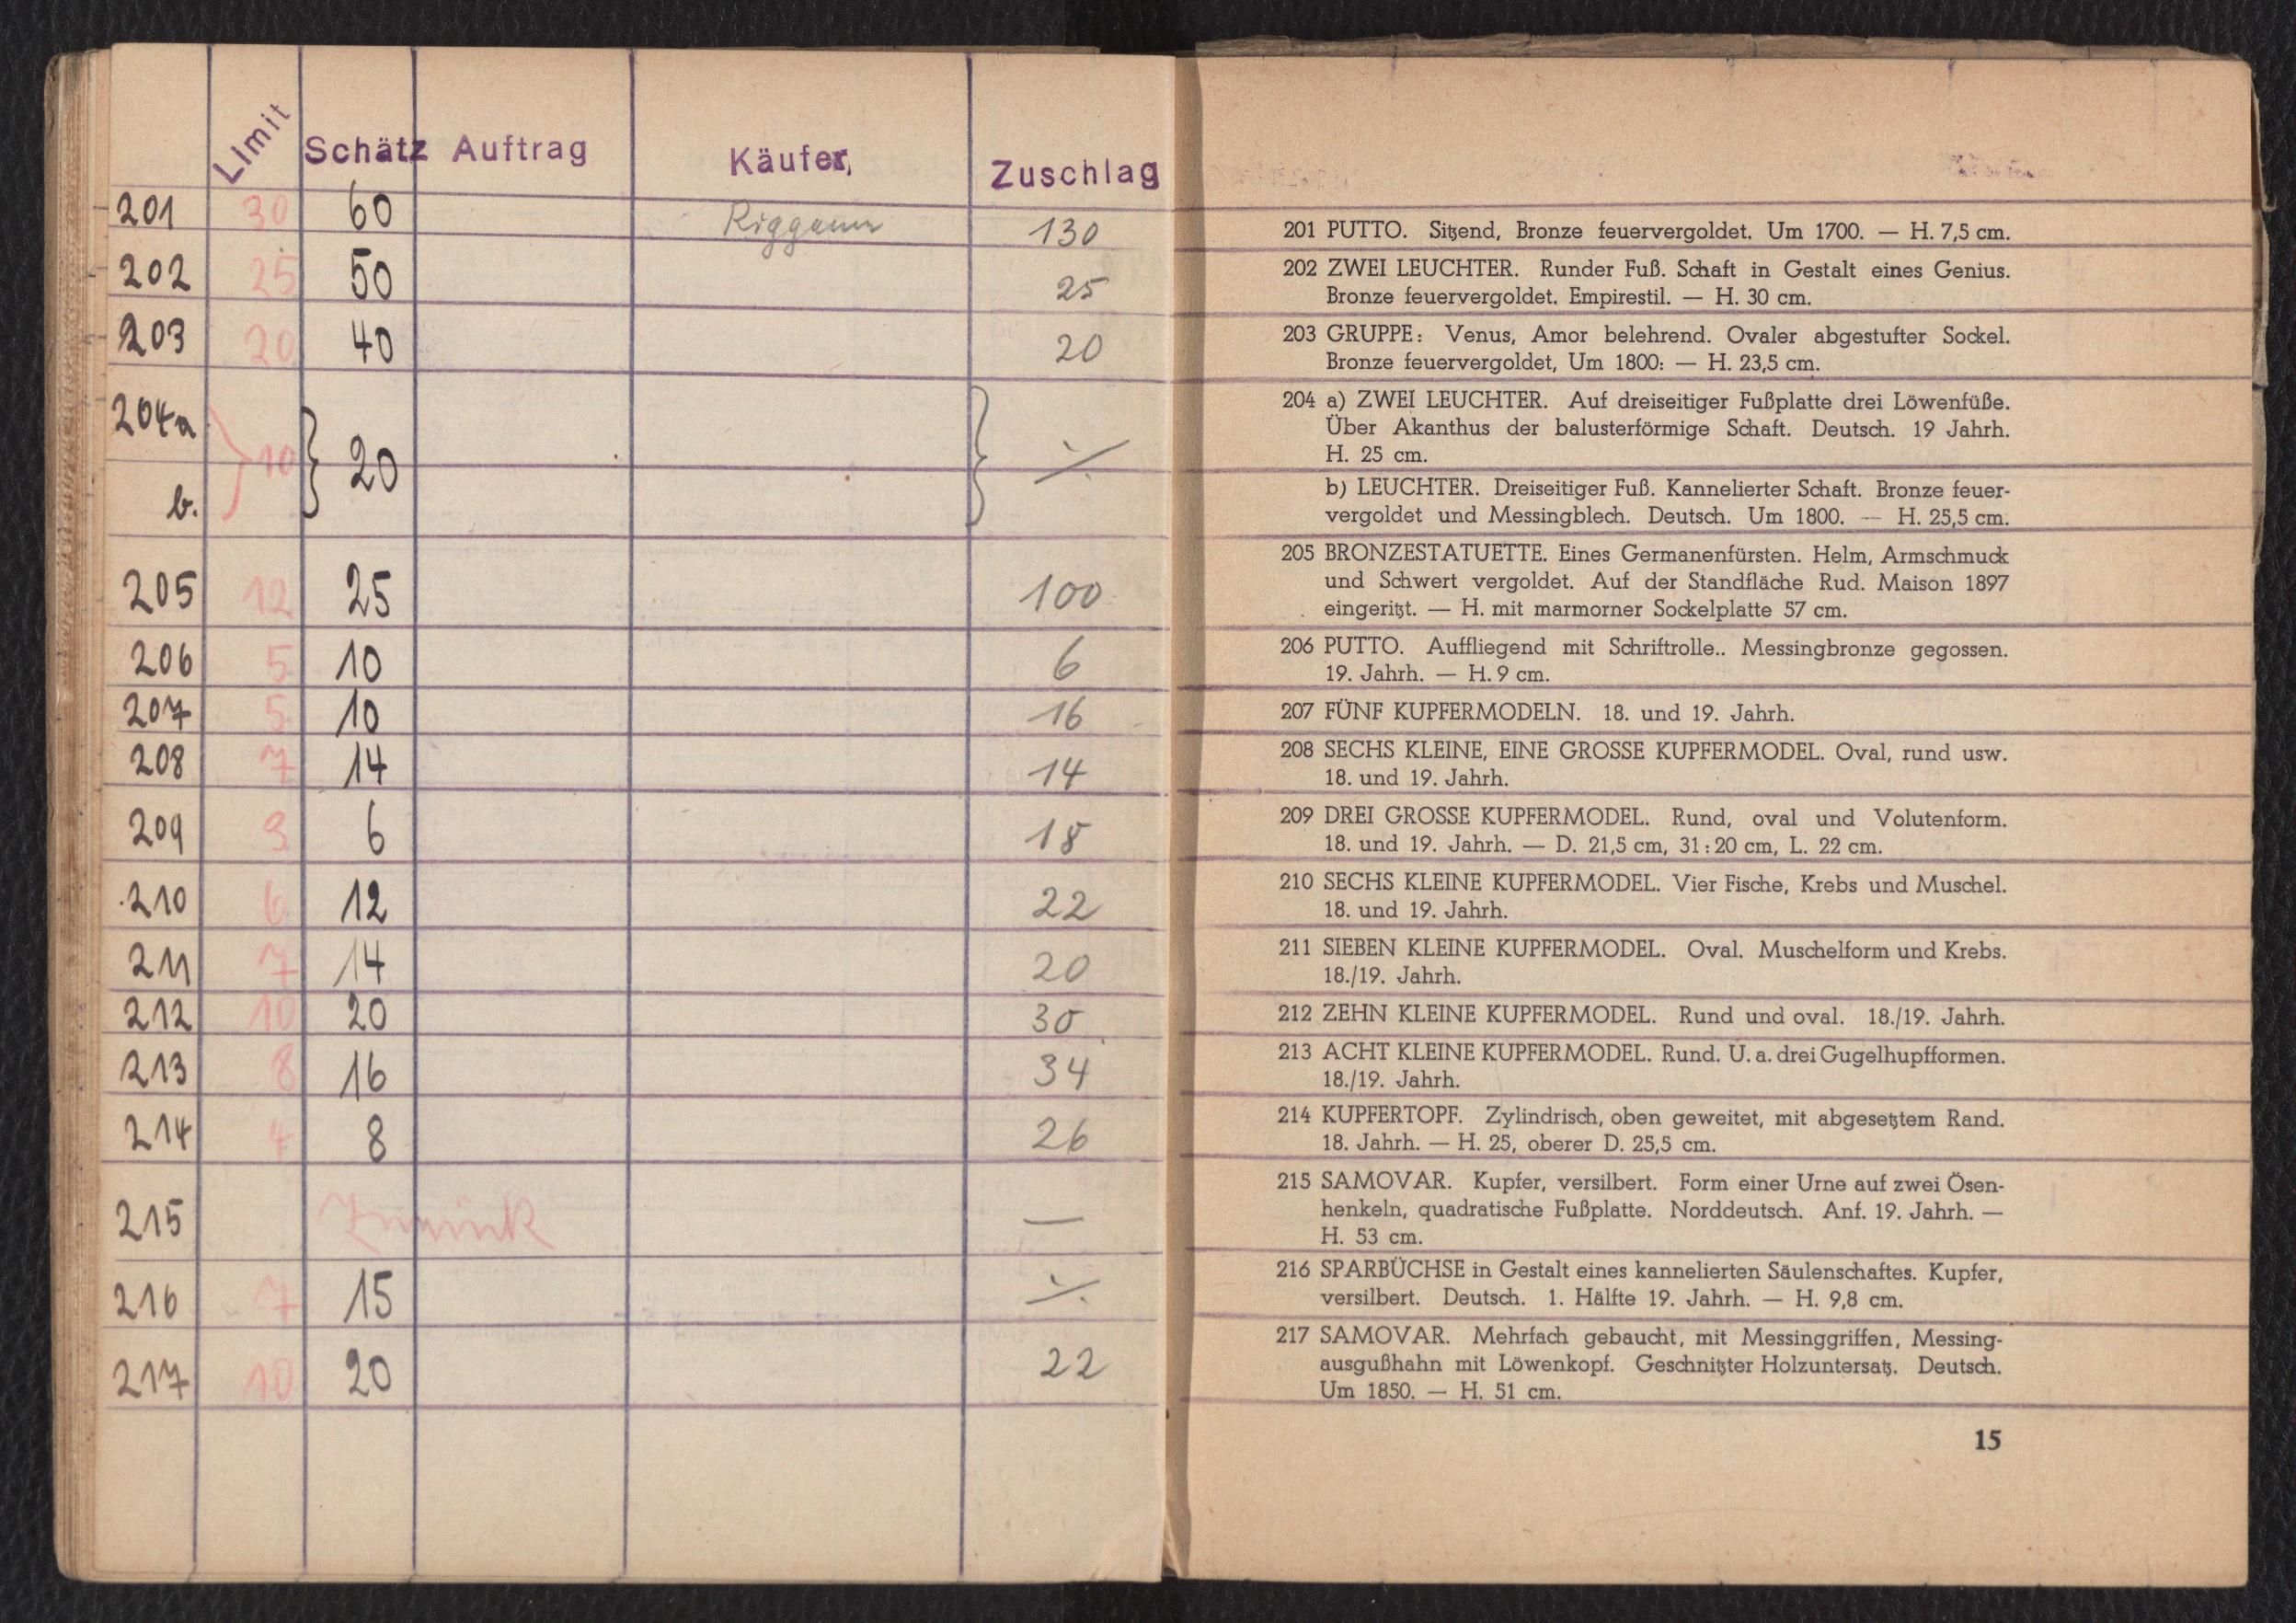 Limit Schätz Auftrag Käufer, Zuschlag
201 30 60 130
202 25 50 25
203 20 40 20
204a
} 10 } 20 } ⁒
b.
205 12 25 100
206 5 10 6
207 5 10 16
208 7 14 14
209 3 6 18
210 6 12 22
211 7 14 20
212 10 20 30
213 8 16 34
214 4 8 26
215 Zurück —
216 7 15 ⁒
217 10 20 22
201 PUTTO. Sitzend, Bronze feuervergoldet. Um 1700. — H. 7,5 cm.
202 ZWEI LEUCHTER. Runder Fuß. Schaft in Gestalt eines Genius.
Bronze feuervergoldet. Empirestil. — H. 30 cm.
203 GRUPPE: Venus, Amor belehrend. Ovaler abgestufter Sockel.
Bronze feuervergoldet, Um 1800: — H. 23,5 cm.
204 a) ZWEI LEUCHTER. Auf dreiseitiger Fußplatte drei Löwenfüße.
Über Akanthus der balusterförmige Schaft. Deutsch. 19 Jahrh.
H. 25 cm.
b) LEUCHTER. Dreiseitiger Fuß. Kannelierter Schaft. Bronze feuer-
vergoldet und Messingblech. Deutsch. Um 1800. — H. 25,5 cm.
205 BRONZESTATUETTE. Eines Germanenfürsten. Helm, Armschmuck
und Schwert vergoldet. Auf der Standfläche Rud. Maison 1897
eingeritzt. — H. mit marmorner Sockelplatte 57 cm.
206 PUTTO. Auffliegend mit Schriftrolle.. Messingbronze gegossen.
19. Jahrh. — H. 9 cm.
207 FÜNF KUPFERMODELN. 18. und 19. Jahrh.
208 SECHS KLEINE, EINE GROSSE KUPFERMODEL. Oval, rund usw.
18. und 19. Jahrh.
209 DREI GROSSE KUPFERMODEL. Rund, oval und Volutenform.
18. und 19. Jahrh. — D. 21,5 cm, 31:20 cm, L. 22 cm.
210 SECHS KLEINE KUPFERMODEL. Vier Fische, Krebs und Muschel.
18. und 19. Jahrh.
211 SIEBEN KLEINE KUPFERMODEL. Oval. Muschelform und Krebs.
18./19. Jahrh.
212 ZEHN KLEINE KUPFERMODEL. Rund und oval. 18./19. Jahrh.
213 ACHT KLEINE KUPFERMODEL. Rund. U. a. drei Gugelhupfformen.
18./19. Jahrh.
214 KUPFERTOPF. Zylindrisch, oben geweitet, mit abgesetztem Rand.
18. Jahrh. — H. 25, oberer D. 25,5 cm.
215 SAMOVAR. Kupfer, versilbert. Form einer Urne auf zwei Ösen-
henkeln, quadratische Fußplatte. Norddeutsch. Anf. 19. Jahrh. —
H. 53 cm.
216 SPARBÜCHSE in Gestalt eines kannelierten Säulenschaftes. Kupfer,
versilbert. Deutsch. 1. Hälfte 19. Jahrh. — H. 9,8 cm.
217 SAMOVAR. Mehrfach gebaucht, mit Messinggriffen, Messing-
ausgußhahn mit Löwenkopf. Geschnitzter Holzuntersatz. Deutsch.
Um 1850. — H. 51 cm.
15